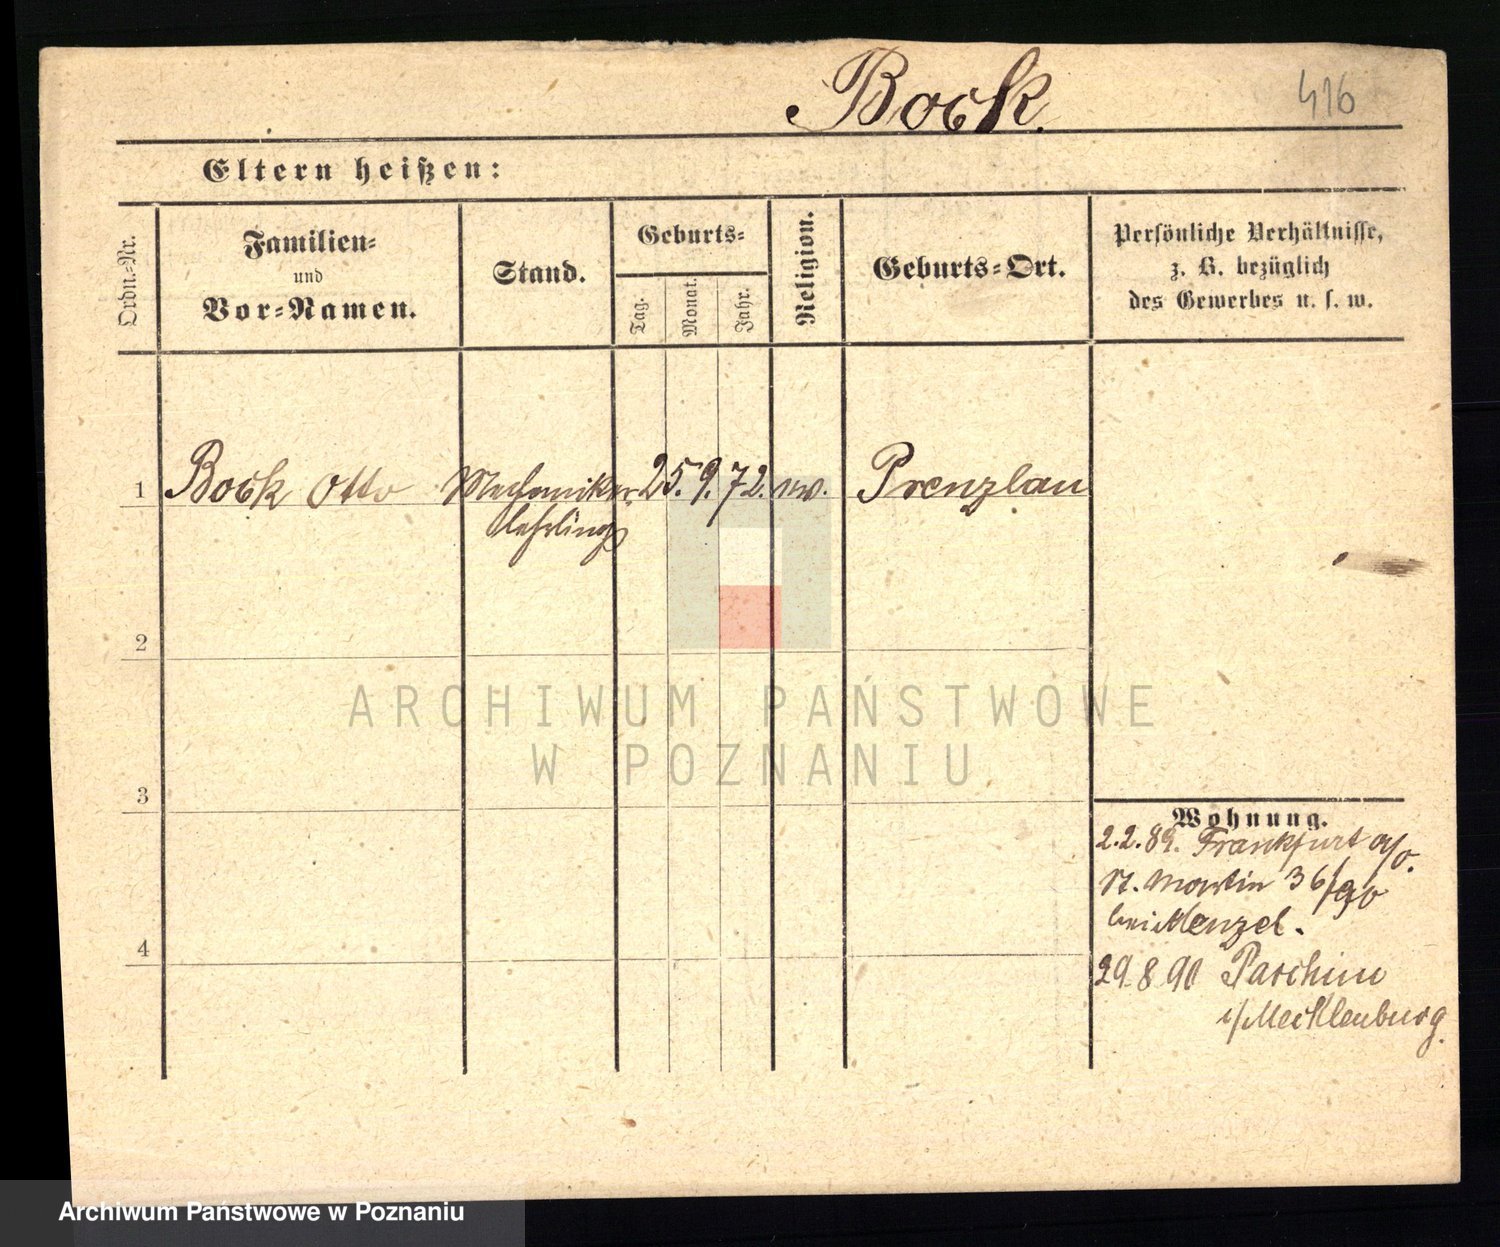 Bock.
416
Eltern heißen:
Ordn.-Nr.
Familien-
und
Vor-Namen.
Stand.
Geburts-
Tag.
Monat.
Jahr.
Religion.
Geburts-Ort.
Persönliche Verhältnisse,
z. B. bezüglich
des Gewerbes u. s. w.
1 Bock Otto Mechaniker 25. 9. 72. ev. Prenzlau
lehrling
2
ARCHIWUM PAŃSTWOWE
W POZNANIU
3
Wohnung.
2.2.89. Frankfurt a/o.
St. Martin 36/90
bei Menzel.
4
29.8.90 Parchim
i/Mecklenburg.
Archiwum Państwowe w Poznaniu